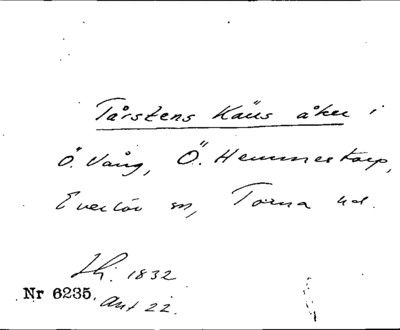 Tårstens Käus åker i
Ö. Vång, Ö. Hemmestorp,
Everlöv sn, Torna hd.
Lh. 1832
Nr 6235. Akt 22.